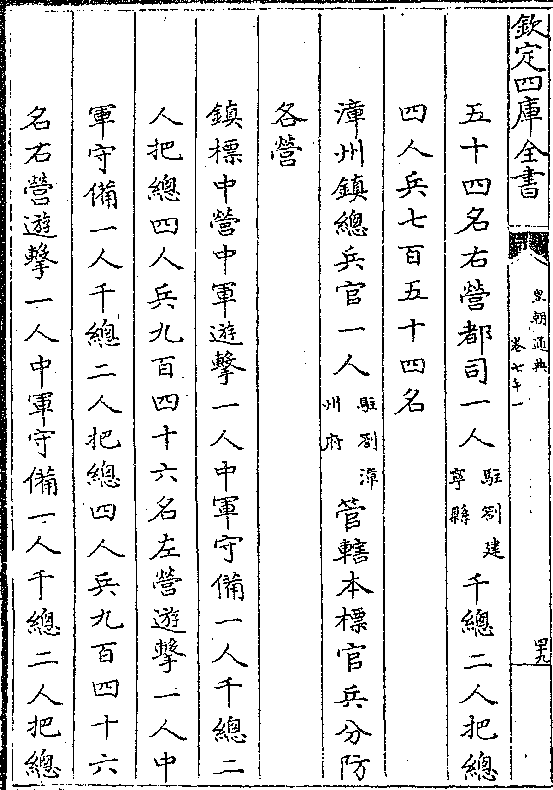 欽定四庫全書
皇朝通典
卷七十一
四十九
五十四名右營都司一人駐劄建寧縣千總二人把總
四人兵七百五十四名
漳州鎮總兵官一人駐劄漳州府管轄本標官兵分防
各營
鎮標中營中軍遊擊一人中軍守備一人千總二
人把總四人兵九百四十六名左營遊擊一人中
軍守備一人千總二人把總四人兵九百四十六
名右營遊擊一人中軍守備一人千總二人把總